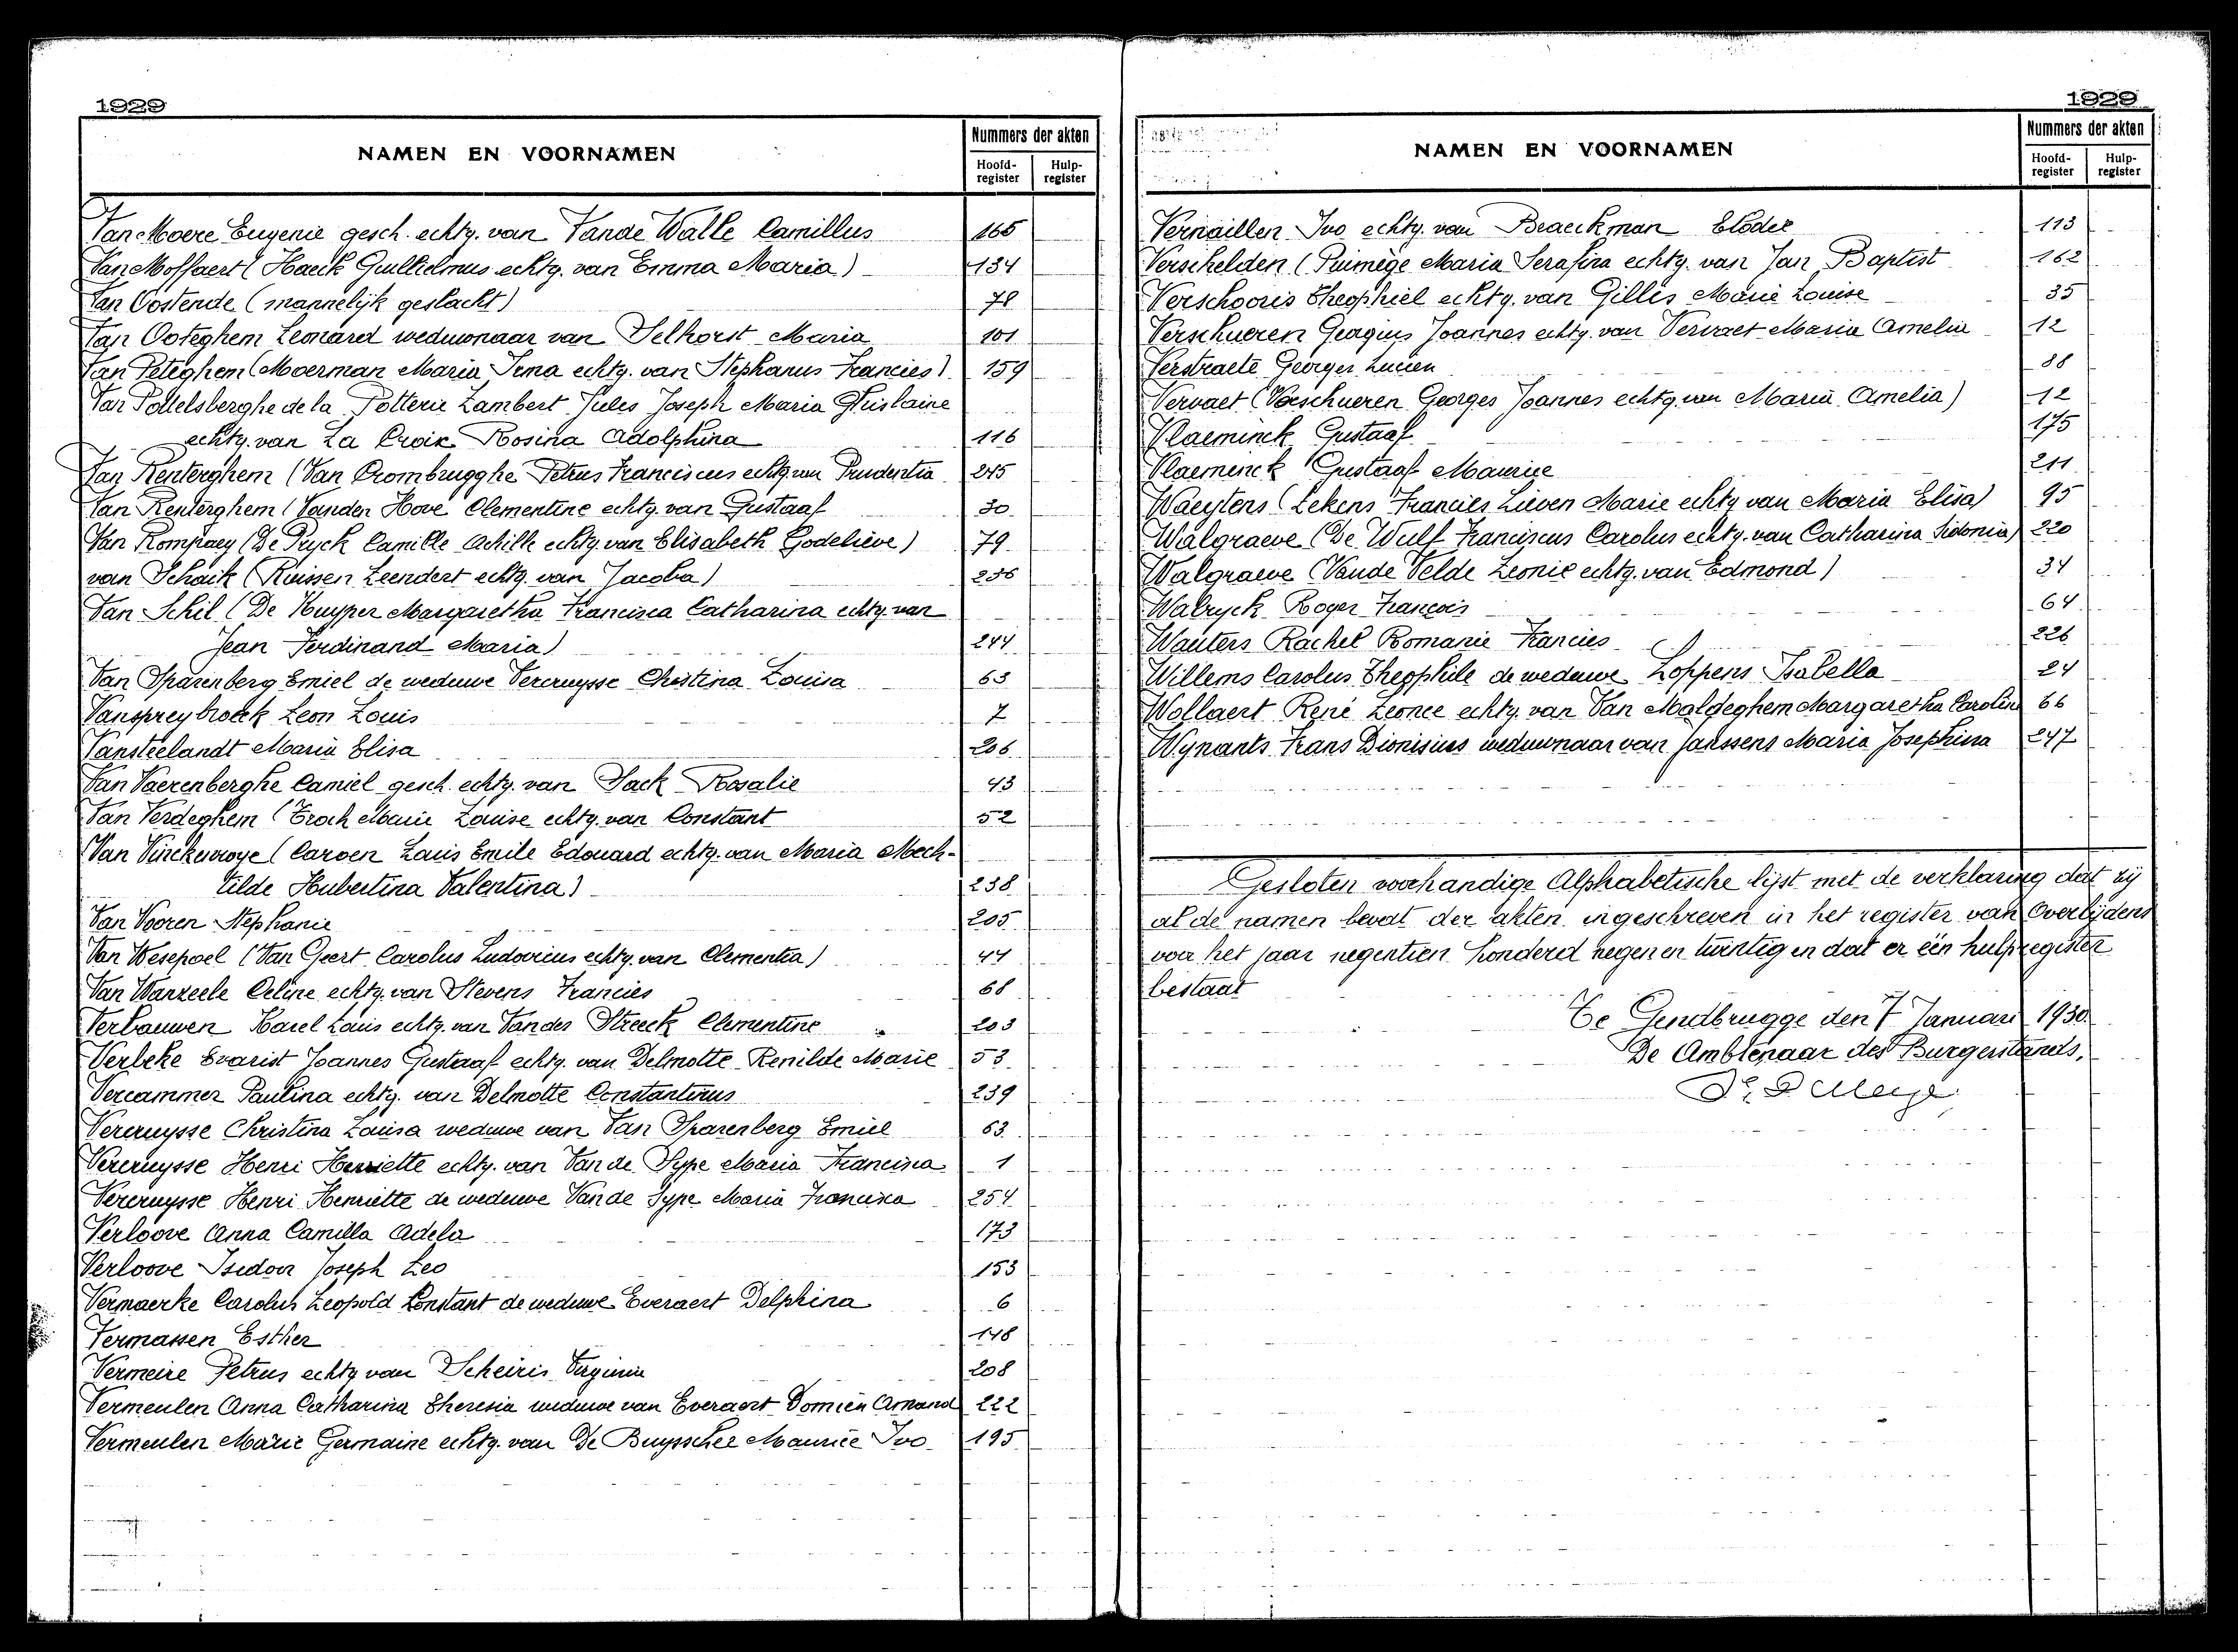 1929
NAMEN EN VOORNAMEN
Nummers der akten
Hoofd-register
Hulp-register
Van Moere Eugenie gesch. echtg. van Vande Walle Camillus 165
Van Moffaert (Haeck Guillielmus echtg. van Emma Maria) 134
Van Oostende (mannelijk geslacht) 78
Van Ooteghem Leonard weduwnaar van Selhorst Maria 101
Van Peteghem (Moerman Maria Irma echtg. van Stephanus Francies) 159
Van Pottelsberghe de la Potterie Lambert Jules Joseph Maria Ghislaine
echtg. van La Croix Rosina Adolphina 116
Van Renterghem (Van Crombrugghe Petrus Franciscus echtg. van Prudentia 245
Van Renterghem (Vanden Hove Clementine echtg. van Gustaaf 30
Van Rompaey (De Pryck Camille Achille echtg. van Elisabeth Godelieve) 79
van Schaik (Ruissen Leendert echtg. van Jacoba) 236
Van Schil (De Kuyper Margaretha Francisca Catharina echtg. van
Jean Ferdinand Maria) 244
Van Sparenberg Emiel de weduwe Vercruysse Christina Louisa 63
Vanspreybroeck Leon Louis 7
Vansteelandt Maria Elisa 206
Van Vaerenberghe Camiel gesch. echtg. van Sack Rosalie 43
Van Verdeghem (Troch Marie Louise echtg. van Constant 52
Van Vinckenroye (Caroen Louis Emile Edouard echtg. van Maria Mech-
tilde Hubertina Valentina) 238
Van Vooren Stephanie 205
Van Wesepoel (Van Geert Carolus Ludovicus echtg. van Clementia) 44
Van Wanzeele Celine echtg. van Stevens Francies 68
Verbauwen Karel Louis echtg. van Vander Streeck Clementine 203
Verbeke Evarist Joannes Gustaaf echtg. van Delmotte Renilde Marie 53
Vercammer Paulina echtg. van Delmotte Constantinus 239
Vercruysse Christina Louisa weduwe van Van Sparenberg Emiel 63
Vercruysse Henri Henriette echtg. van Van de Sype Maria Francisca 1
Vercruysse Henri Henriette de weduwe Van de Sype Maria Francisca 254
Verloove Anna Camilla Adela 173
Verloove Isidoor Joseph Leo 153
Vermaerke Carolus Leopold Constant de weduwe Everaert Delphina 6
Vermassen Esther 148
Vermeire Petrus echtg van Scheiris Virginie 208
Vermeulen Anna Catharina Theresia weduwe van Everaert Domien Amand 222
Vermeulen Marie Germaine echtg. van De Buysscher Maurice Ivo 195
1929
NAMEN EN VOORNAMEN
Nummers der akten
Hoofd-register
Hulp-register
Vernaillen Ivo echtg. van Braeckman Elodie 113
Verschelden (Pumège Maria Serafina echtg. van Jan Baptist 162
Verschooris Theophiel echtg. van Gillis Marie Louise 35
Verschueren Georgius Joannes echtg. van Vervaet Maria Amelia 12
Verstraete Georges Lucien 88
Vervaet (Verschueren Georges Joannes echtg. van Maria Amelia) 12
Vlaeminck Gustaaf 175
Vlaeminck Gustaaf Maurice 211
Waeytens (Lekens Francies Lieven Marie echtg van Maria Elisa) 95
Walgraeve (De Wulf Franciscus Carolus echtg. van Catharina Sidonia) 220
Walgraeve (Vande Velde Leonie echtg. van Edmond) 34
Walryck Roger François 64
Wauters Rachel Romanie Francies 226
Willems Carolus Theophile de weduwe Loppens Isabella 24
Wollaert René Leonce echtg. van Van Maldeghem Margaretha Carolin 66
Wynants Frans Dionisius weduwnaar van Janssens Maria Josephina 247
Gesloten voorhandige Alphabetische lijst met de verklaring dat zij
al de namen bevat der akten ingeschreven in het register van Overlijdens
voor het jaar negentien honderd negen en twintig en dat er één hulpregister
bestaat
Te Gendbrugge den 7 Januari 1930.
De Ambtenaar des Burgerstands,